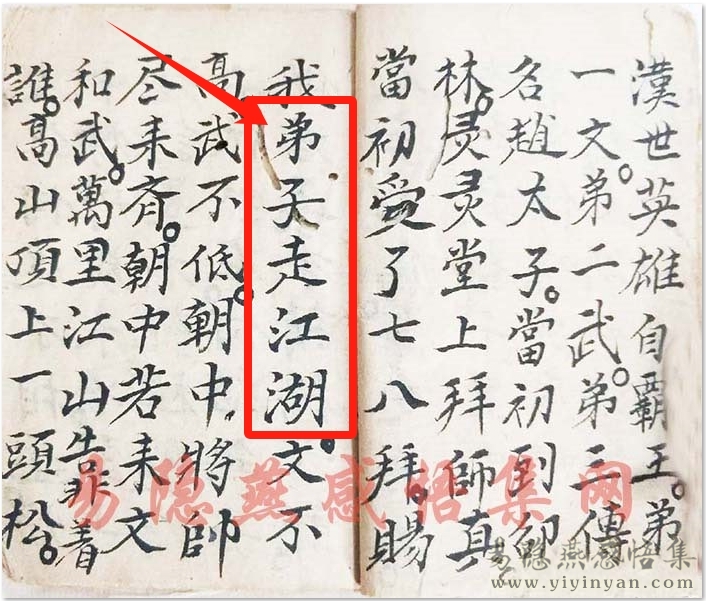 漢世英雄自霸王。弟
一文。弟二武。弟三傳
名趙太子。當初到卯
林。灵灵堂上拜師真
當初受了七八拜。賜
我弟子走江湖。文不
高武不低。朝中將帥
尽来斉。朝中若来文
和武。萬里江山告非着
誰。高山頂上一頭松。
易隐燕感悟集网
易隐燕感悟集
www.yiyinyan.com